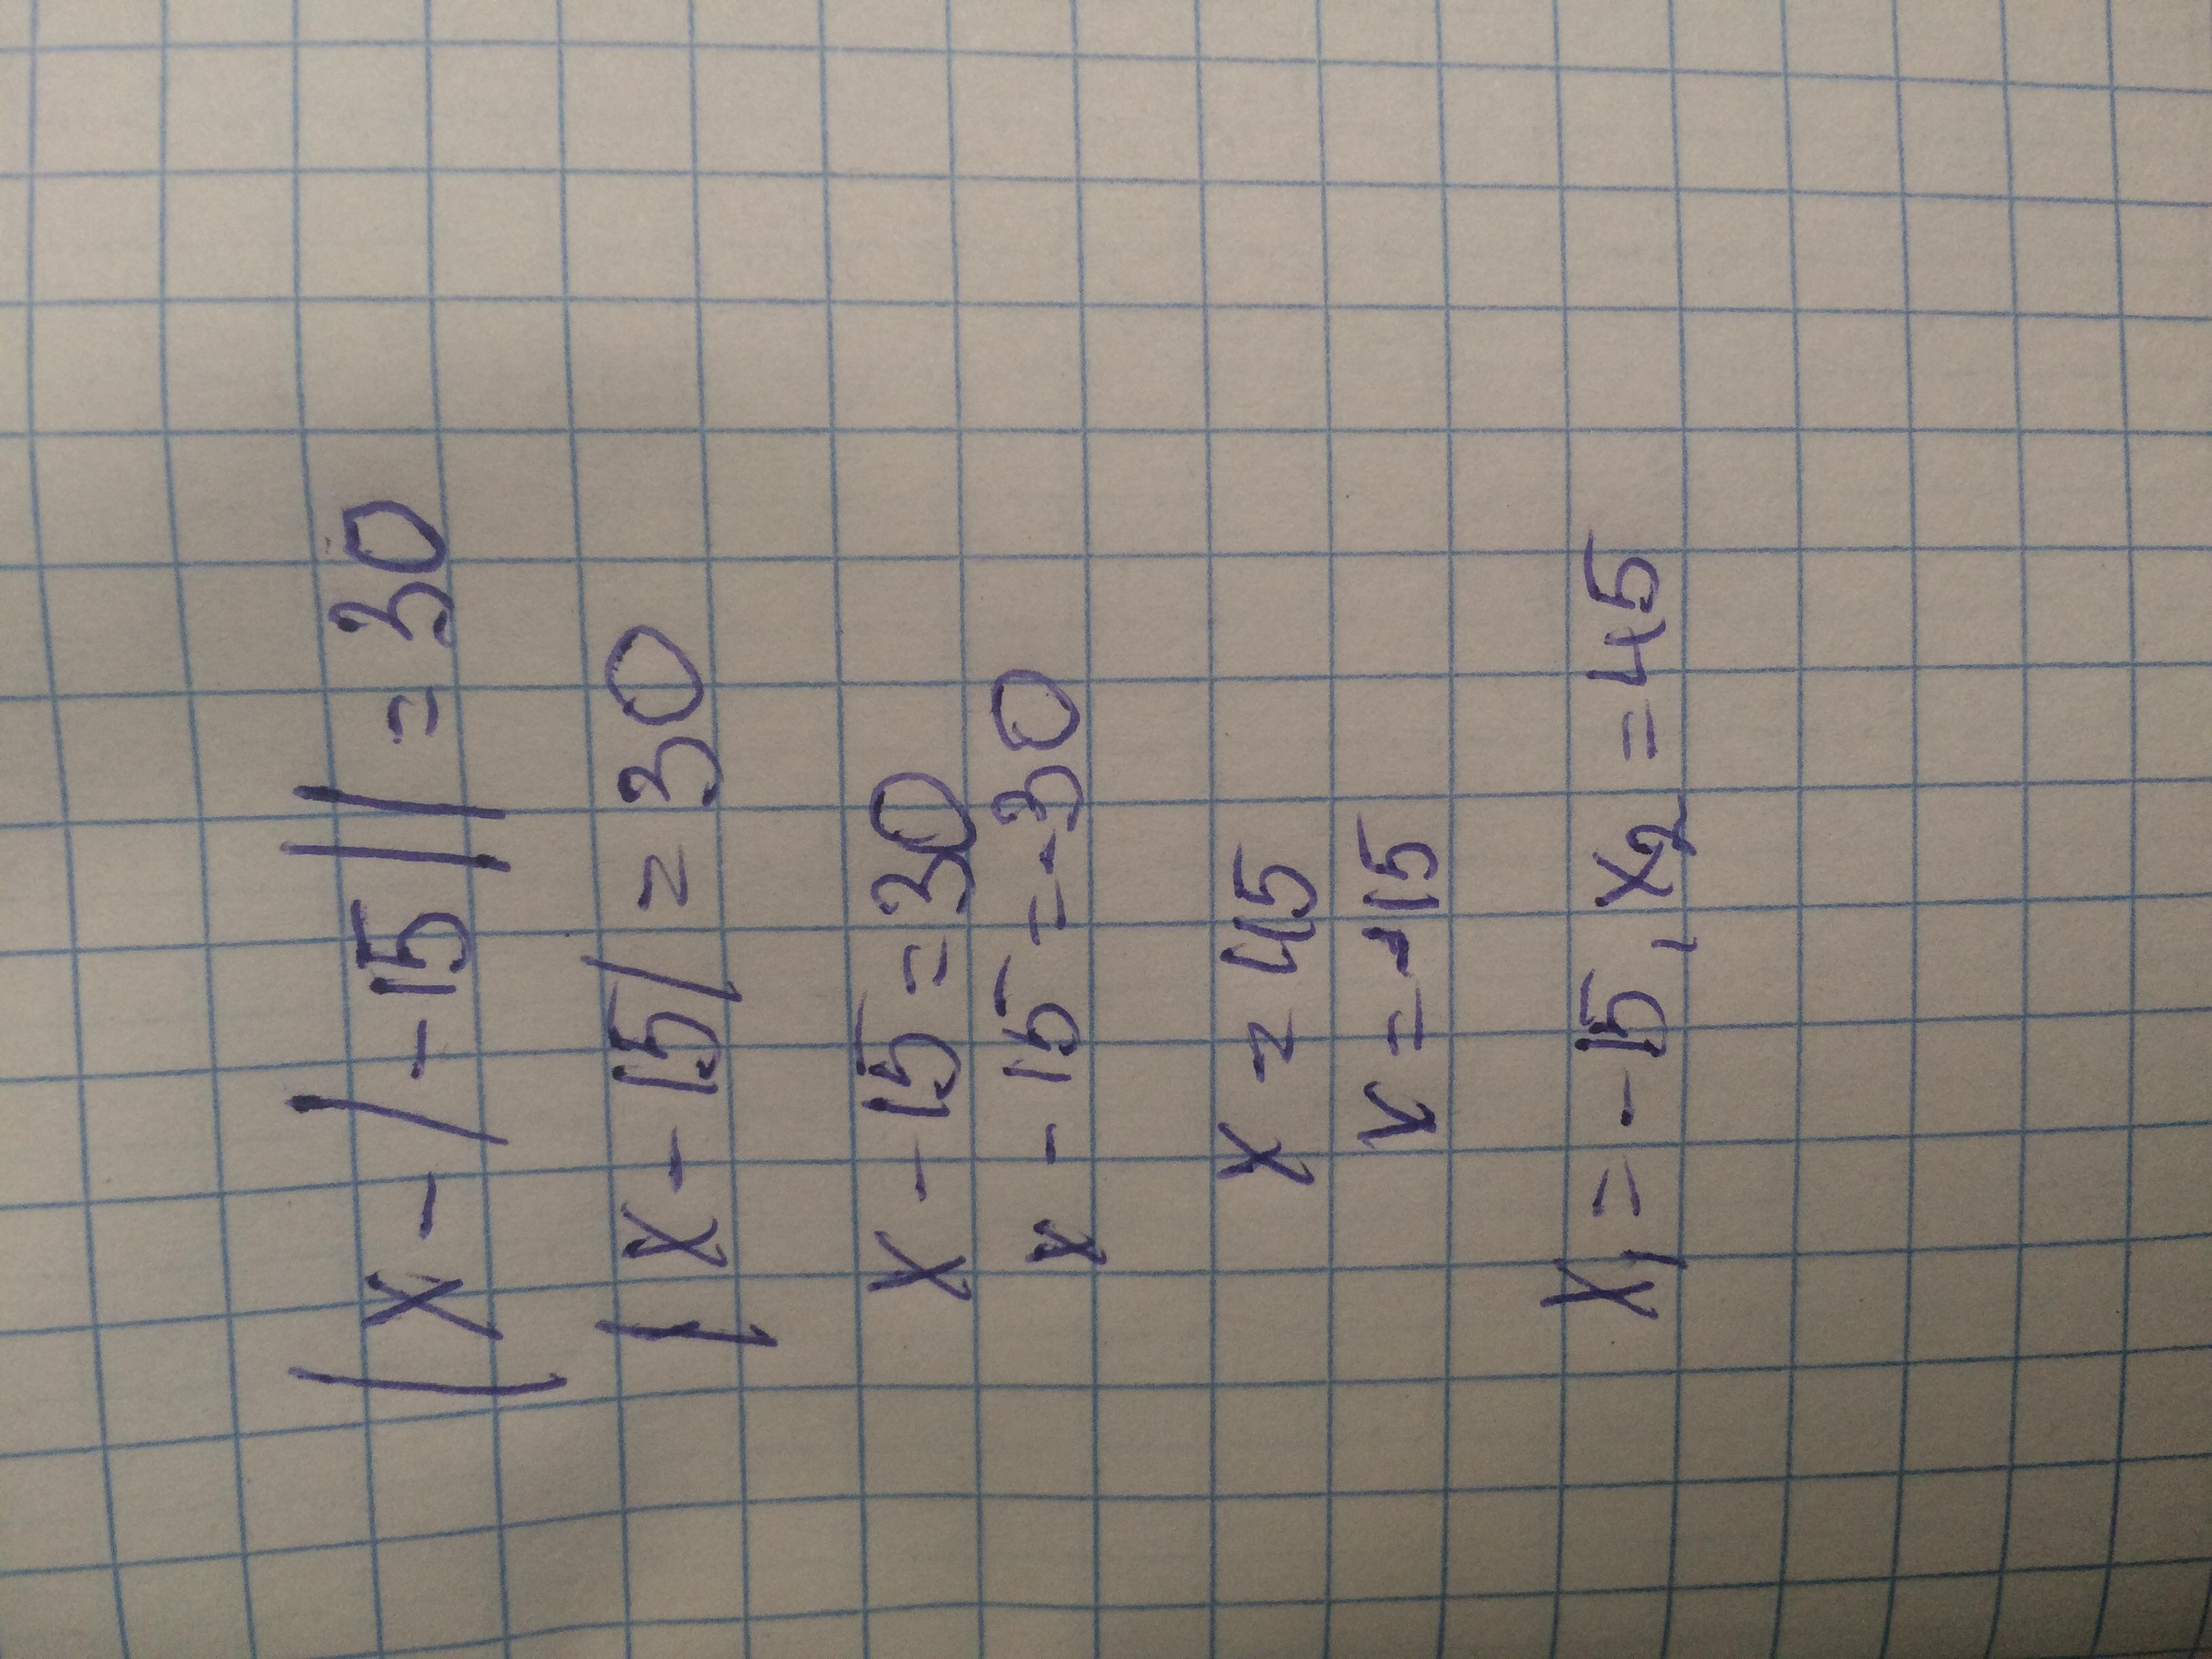 |x - |-15|| = 30
|x - 15| = 30
x - 15 = 30
x - 15 = -30
x = 45
x = -15
x₁ = -15, x₂ = 45